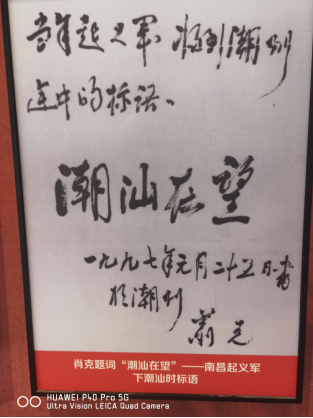 当年起义军将到潮州
途中的标语。
潮汕在望
一九九七年元月二十五日书
于潮州
萧克
肖克题词“潮汕在望”——南昌起义军
下潮汕时标语
HUAWEI P40 Pro 5G
Ultra Vision LEICA Quad Camera